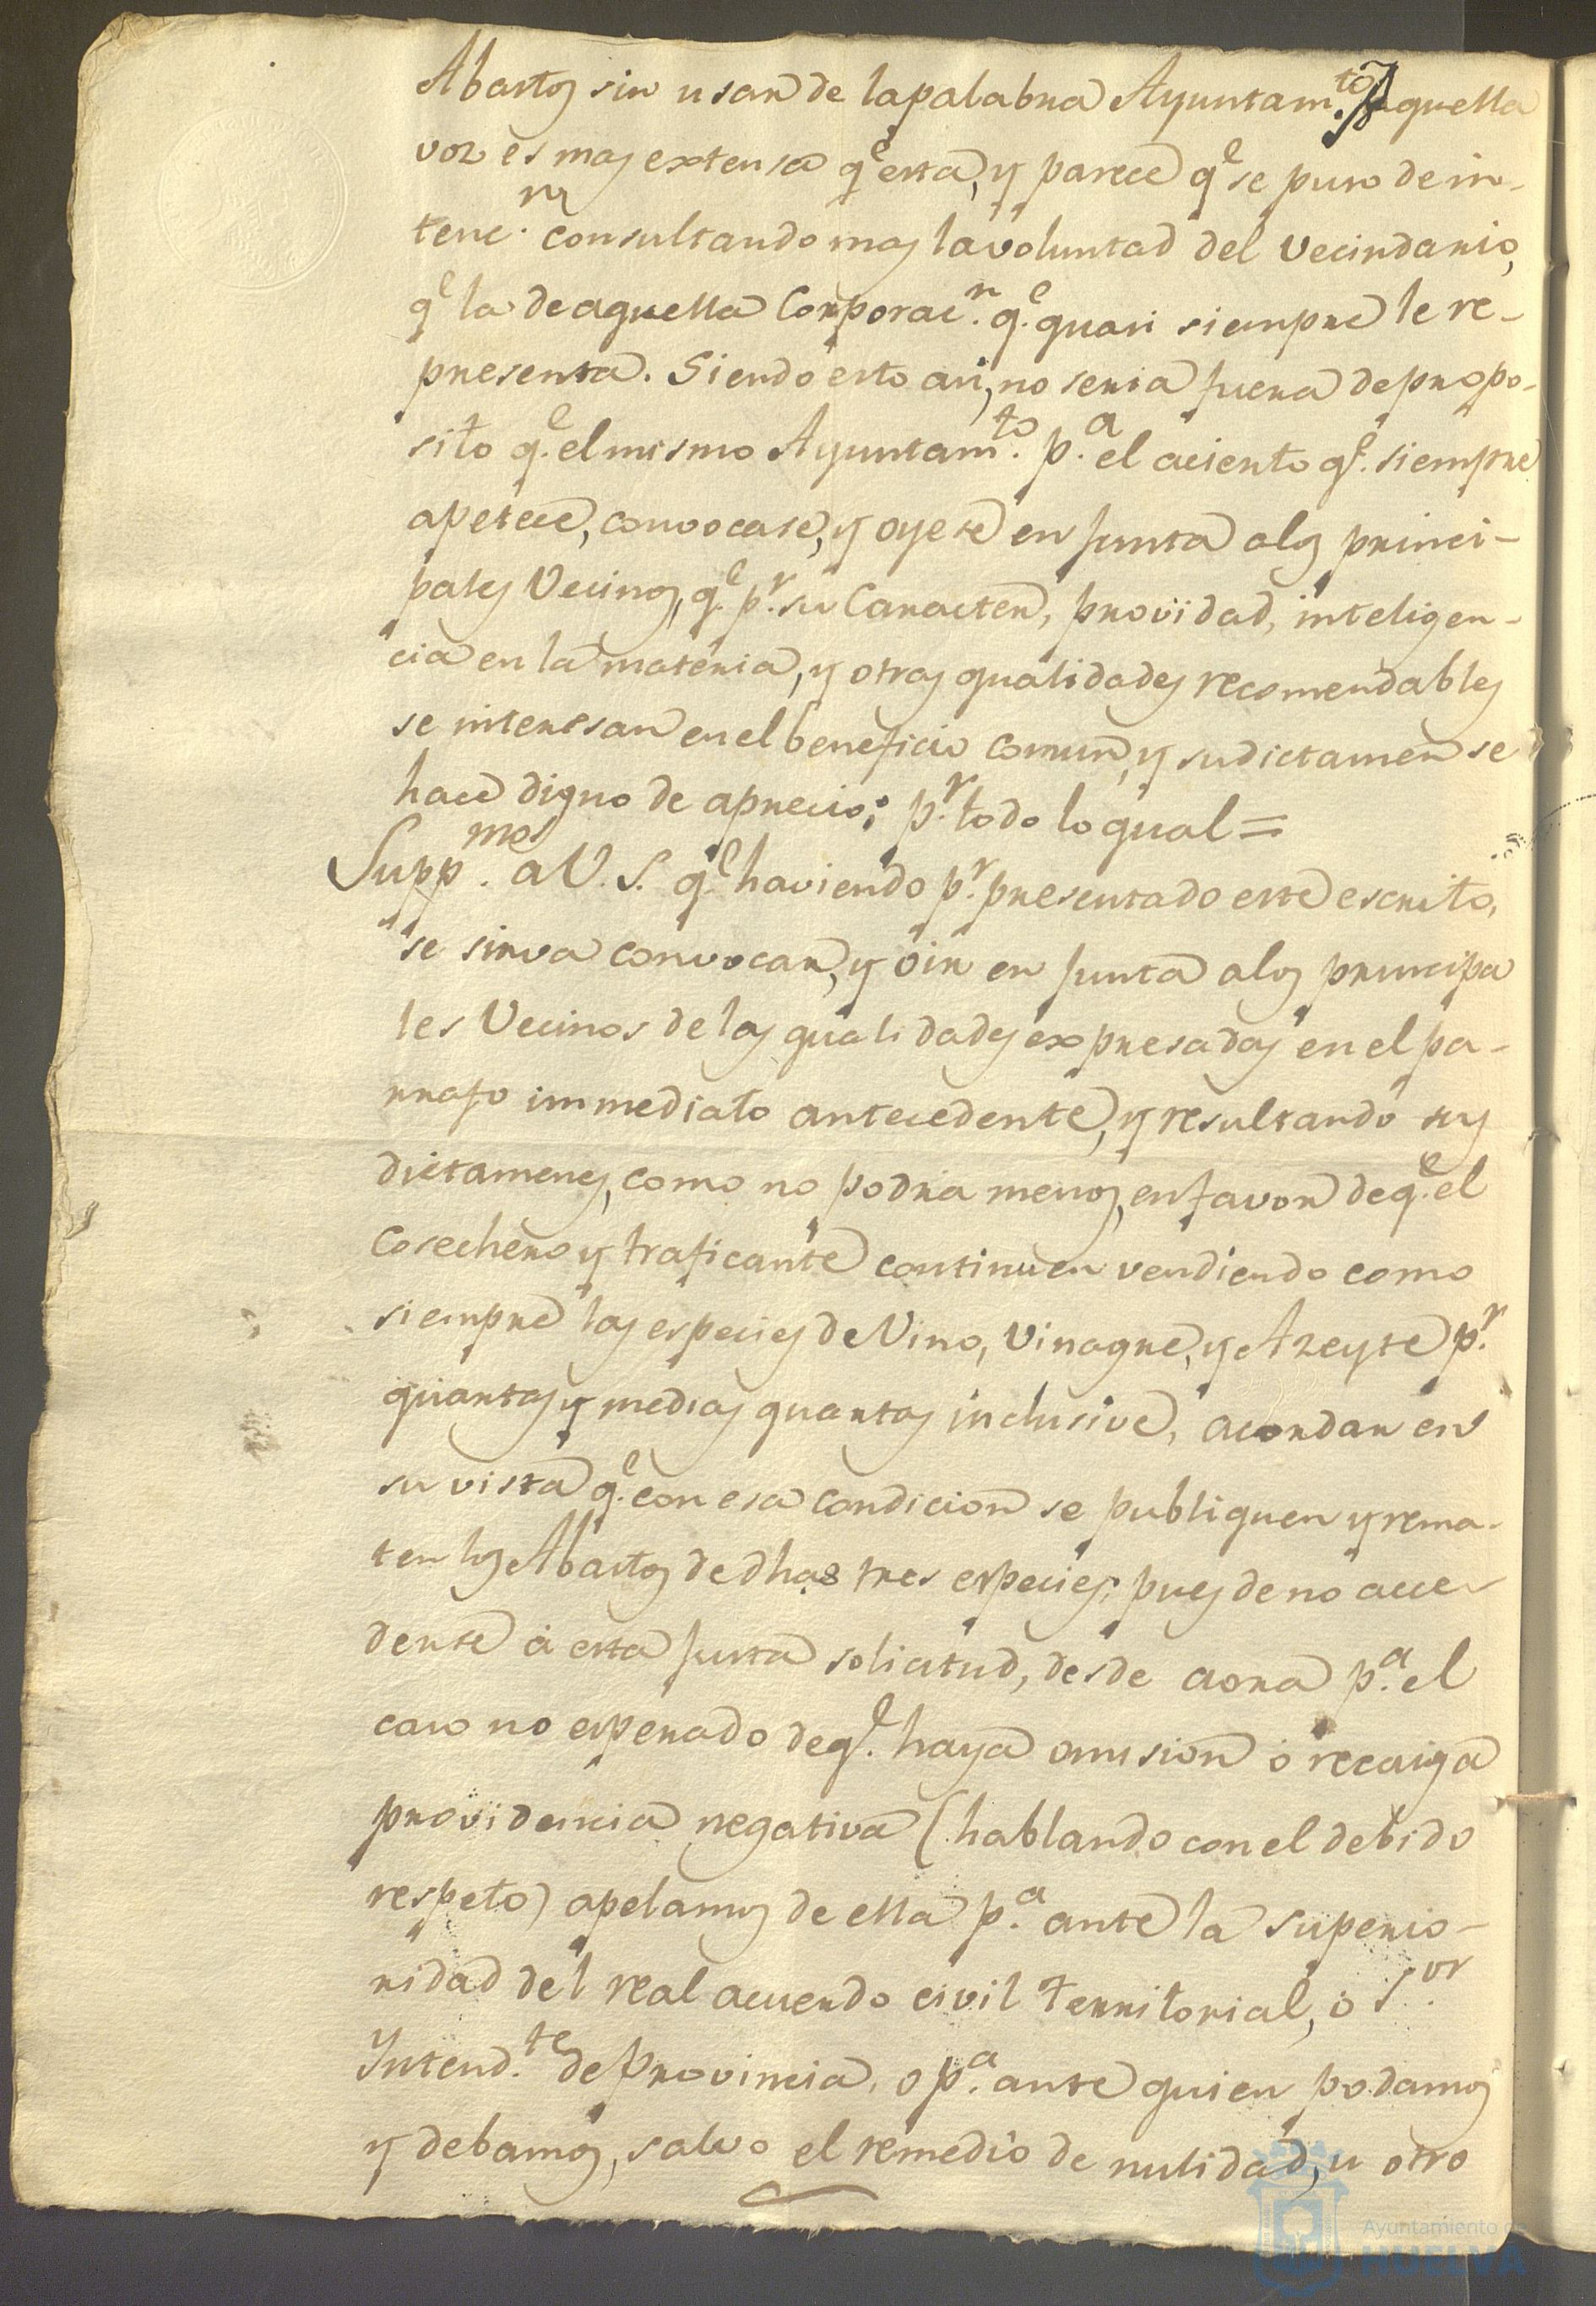 Abastos sin usar de la palabra Ayuntam.to, aquella
voz es mas extensa q.e esta, y parece q.e se puso de in-
tenc.n consultando mas la voluntad del Vecindario,
q.e la de aquella Corporac.n q.e quasi siempre le re-
presenta. Siendo esto asi, no seria fuera de propo-
sito q.e el mismo Ayuntam.to p.a el acierto q.e siempre
apetece, convocase, y oyese en junta a los princi-
pales Vecinos, q.e p.r su Caracter, providad, inteligen-
cia en la materia, y otras qualidades recomendables
se interesan en el beneficio comun, y su dictamen se
hace digno de aprecio; p.r todo lo qual =
Supp.mos a V. S. q.e haviendo p.r presentado este escrito,
se sirva convocar, y oir en junta a los principa
les Vecinos de las qualidades expresadas en el pa-
rrafo immediato antecedente, y resultando sus
dictamenes, como no podra menos, en favor de q.e el
Cosechero y traficante continuen vendiendo como
siempre las especies de Vino, Vinagre, y Azeyte p.r
quartas y medias quartas inclusive, acordar en
su vista q.e con esa condicion se publiquen y rema-
ten los Abastos de dhas tres especies; pues de no acce-
derse á esta justa solicitud, desde aora p.a el
caso no esperado de q.e haya omision ó recaiga
providencia negativa (hablando con el debido
respeto) apelamos de ella p.a ante la superio-
ridad del real acuerdo civil territorial, ó S.or
Yntend.te de Provincia, o p.a ante quien podamos
y debamos, salvo el remedio de nulidad, u otro
Ayuntamiento de
HUELVA